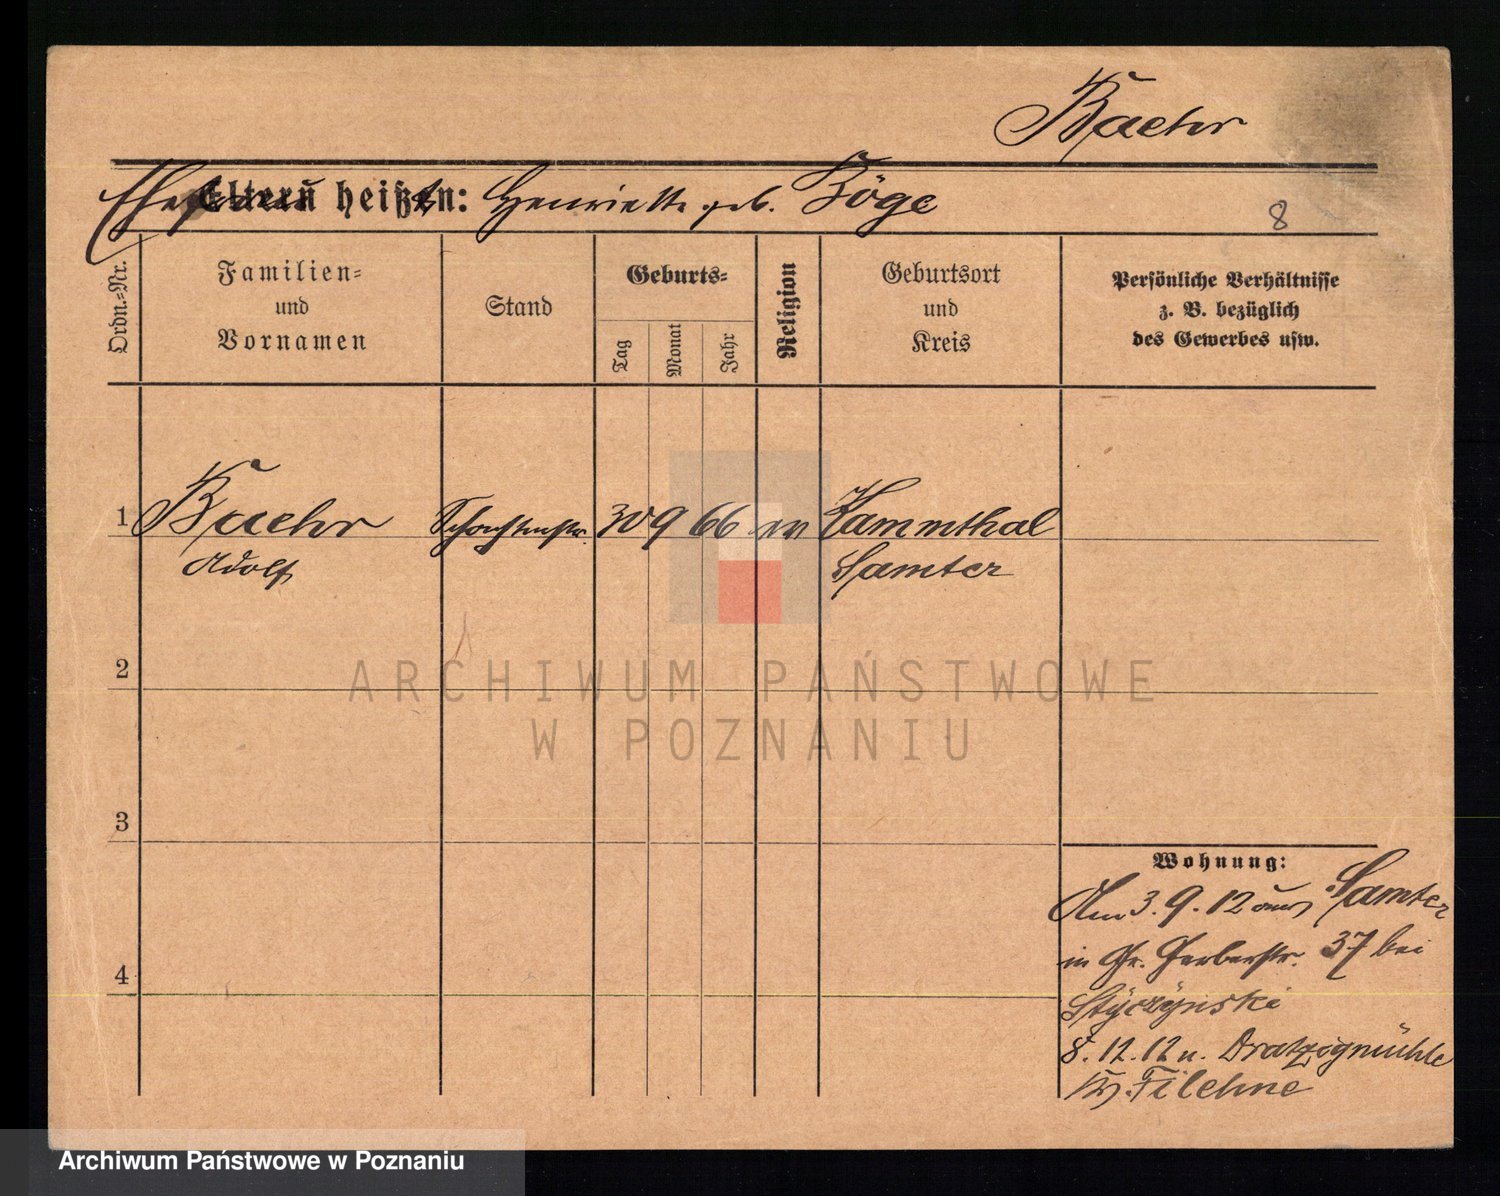 Baehr
Ehefrau
Eltern heißen: Henriette geb. Böge
8
Ordn.=Nr.
Familien=
und
Vornamen
Stand
Geburts=
Tag
Monat
Jahr
Religion
Geburtsort
und
Kreis
Persönliche Verhältnisse
z. B. bezüglich
des Gewerbes usw.
1 Baehr 30 9 66 ev Kammthal
Adolf Samter
2
ARCHIWUM PAŃSTWOWE
W POZNANIU
3
Wohnung:
Am 3. 9. 12 aus Samter
in Gr. Gerberstr. 37 bei
Styczynski
4
8. 12. 12 n. Dratzigmühle
Kr. Filehne
Archiwum Państwowe w Poznaniu